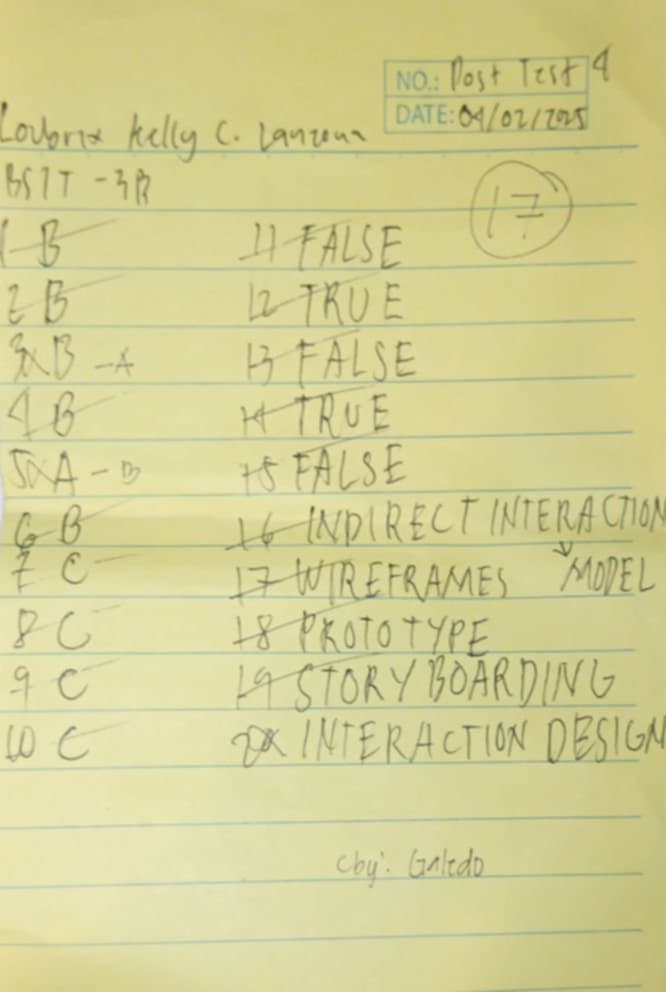 NO.: Post Test 4
DATE: 04/02/2025
Kelly C.
BSIT - 3B
17
1 B
2 B
3x B - A
4 B
5x A - B
6 B
7 C
8 C
9 C
10 C
11 FALSE
12 TRUE
13 FALSE
14 TRUE
15 FALSE
16 INDIRECT INTERACTION
MODEL
17 WIREFRAMES
18 PROTOTYPE
19 STORYBOARDING
20x INTERACTION DESIGN
cby: Galedo